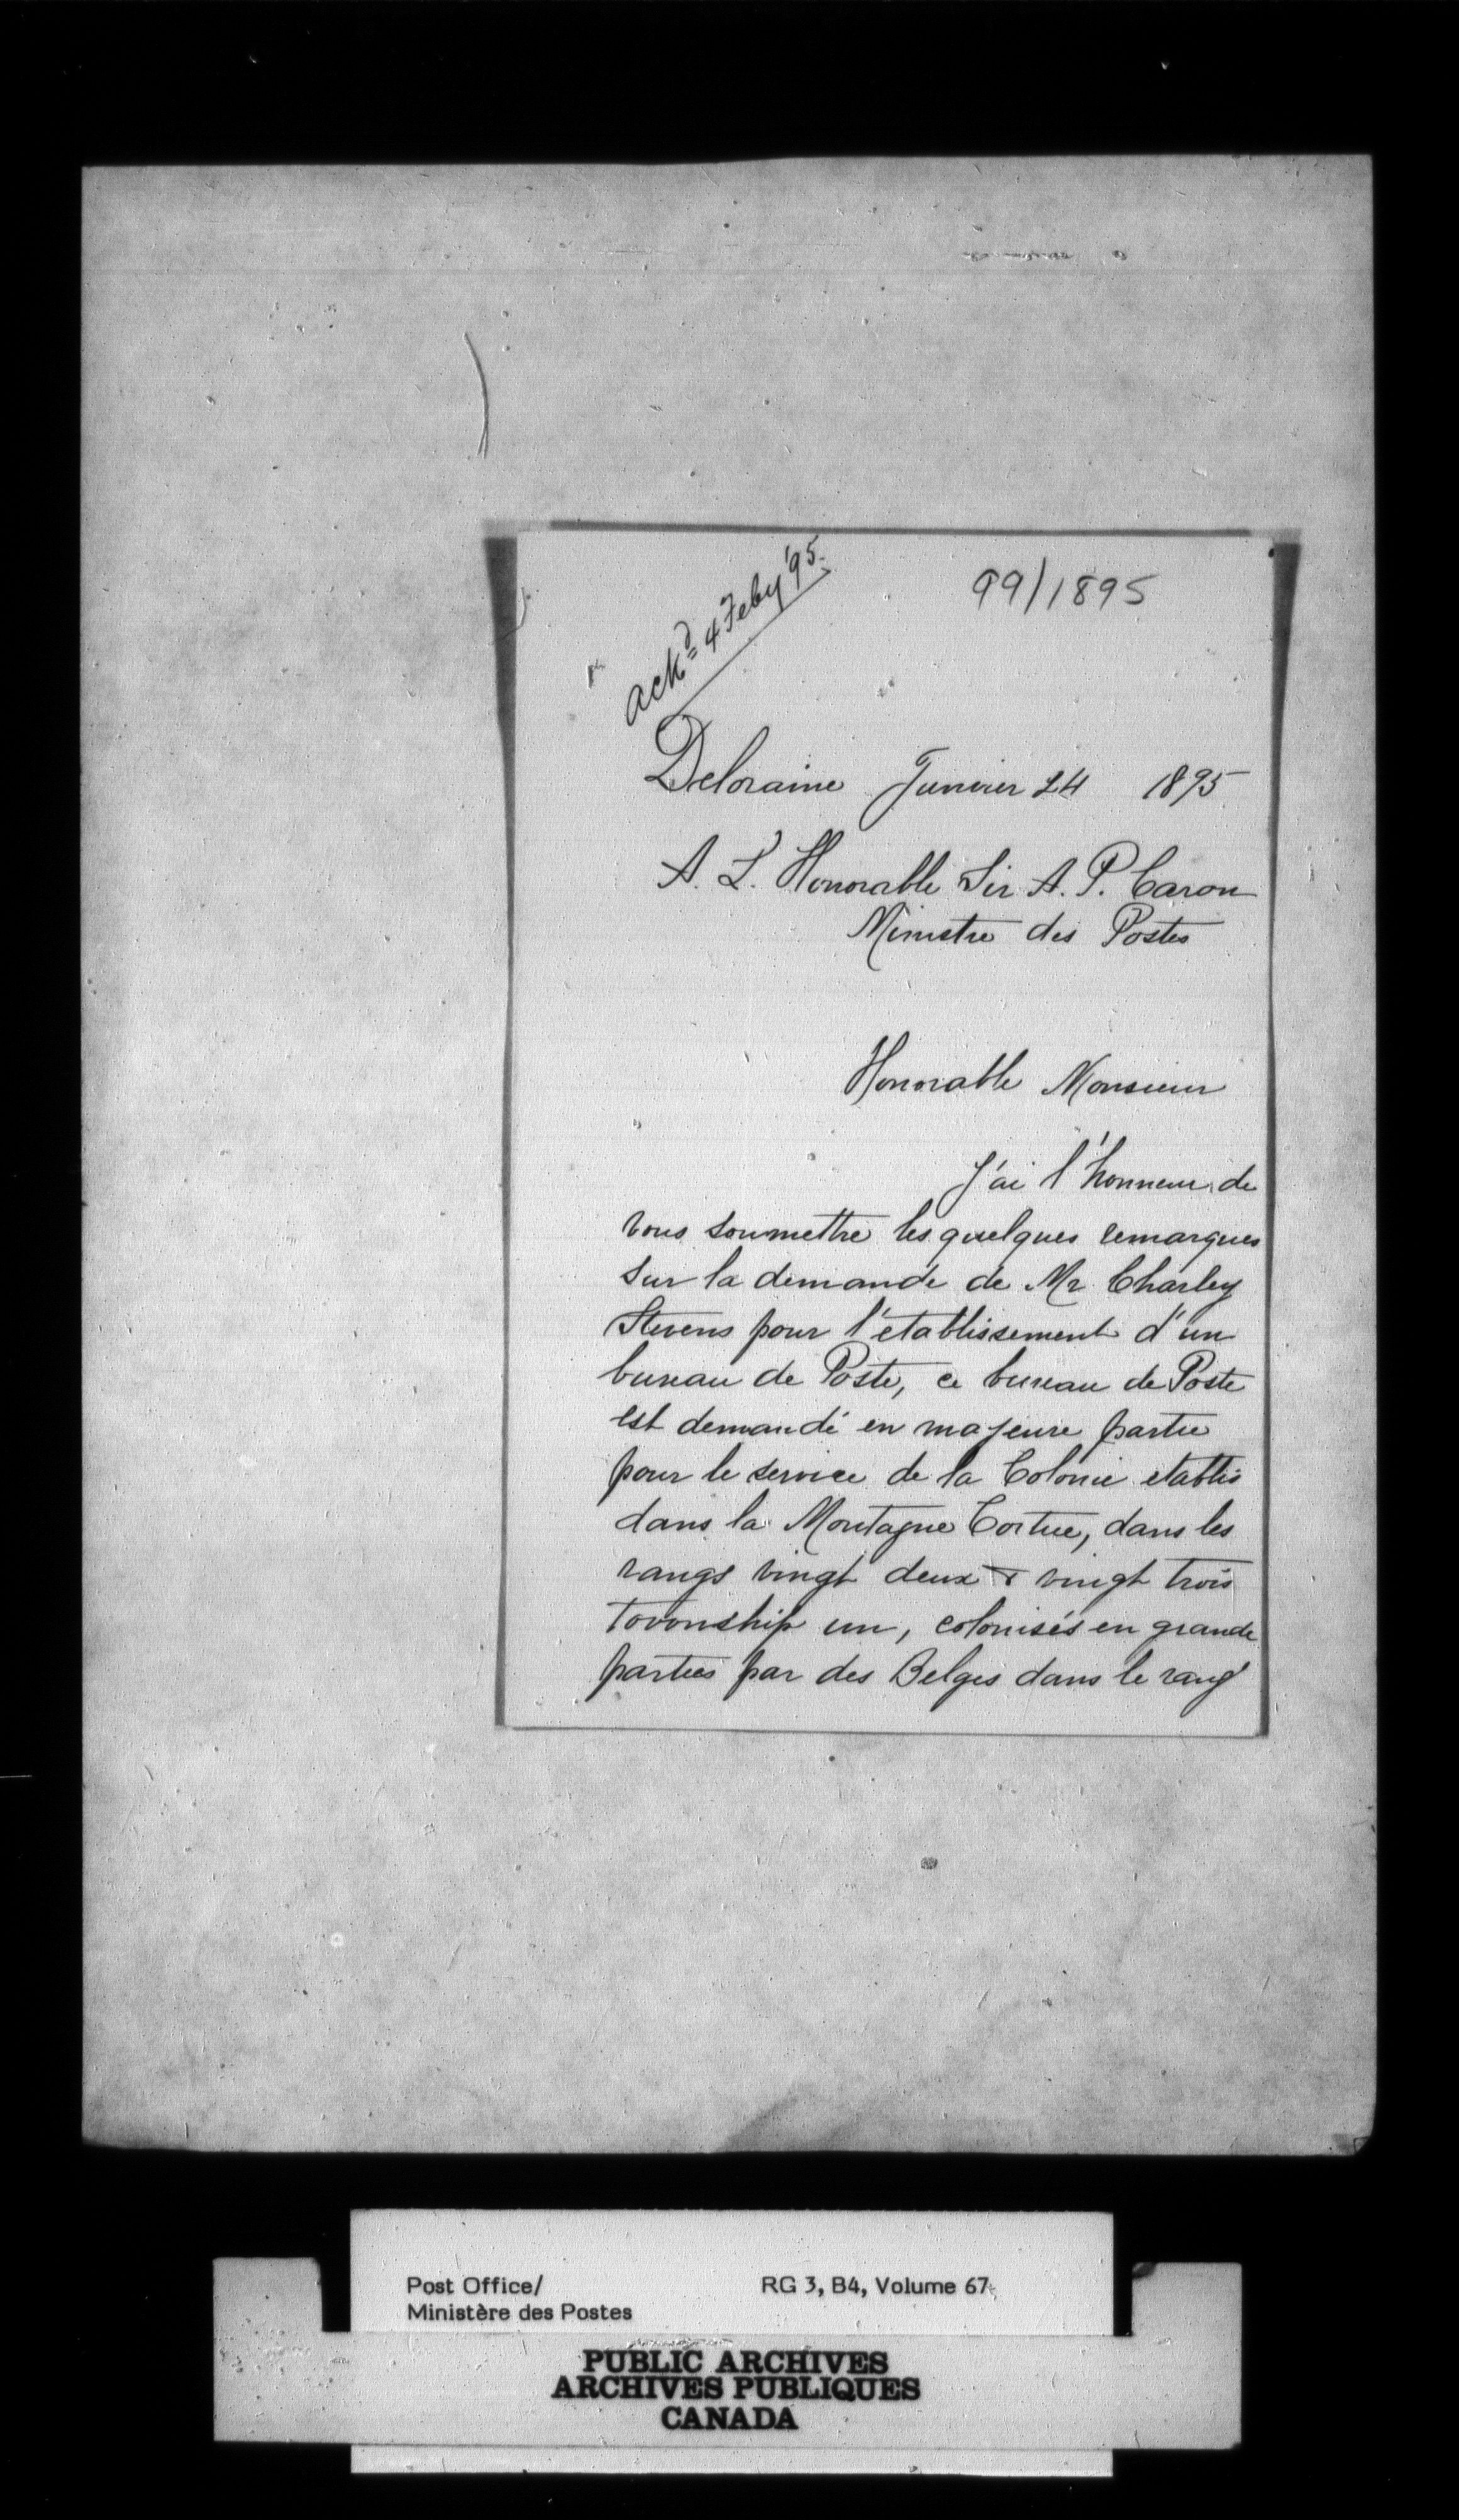 ackd 4 Feby '95.
99/1895
Deloraine Janvier 24 1895
A. L. Honorable Sir A. P. Caron
Ministre des Postes
Honorable Monsieur
J'ai l'honneur de
vous soumettre les quelques remarques
sur la demande de Mr Charley
Stevens pour l'etablissement d'un
bureau de Poste, ce bureau de Poste
est demandé en majeure partie
pour le service de la Colonie etablis
dans la Montagne Tortue, dans les
rangs vingt deux & vingt trois
Township un, colonisés en grande
parties par des Belges dans le rang
Post Office/
Ministère des Postes
RG 3, B4, Volume 67
PUBLIC ARCHIVES
ARCHIVES PUBLIQUES
CANADA